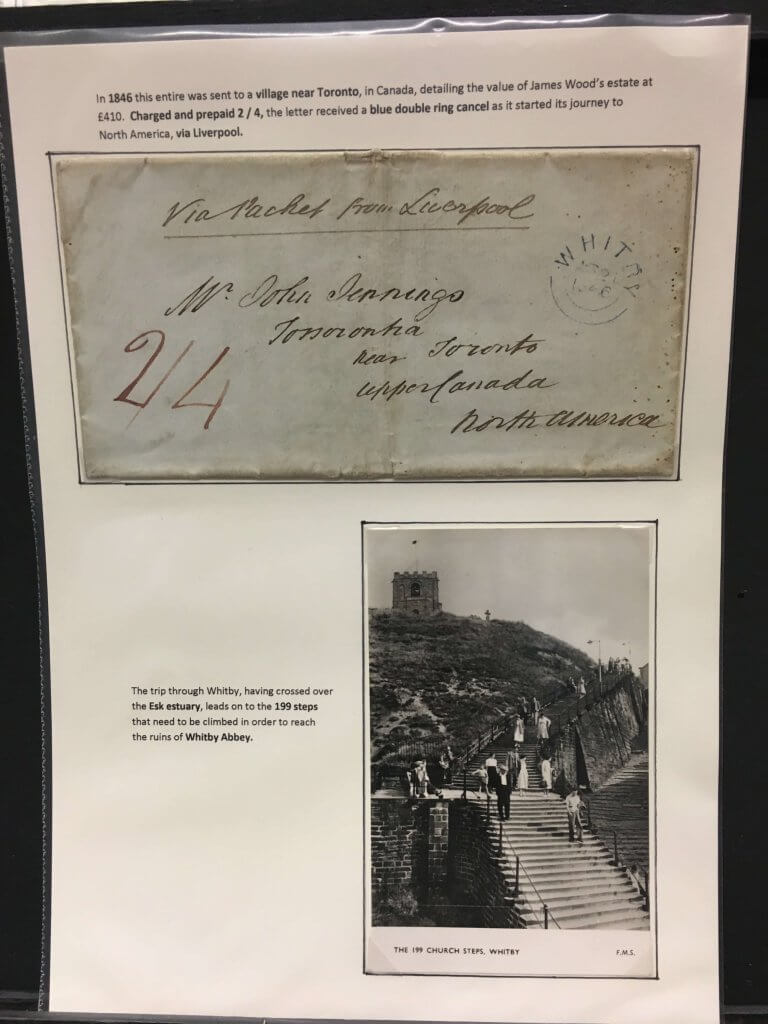 In 1846 this entire was sent to a village near Toronto, in Canada, detailing the value of James Wood's estate at
£410. Charged and prepaid 2 / 4, the letter received a blue double ring cancel as it started its journey to
North America, via Liverpool.
Via Packet from Liverpool
WHITBY
1846
Mr. John Jennings
Tossorontia
near Toronto
upper Canada
North America
2/4
The trip through Whitby, having crossed over
the Esk estuary, leads on to the 199 steps
that need to be climbed in order to reach
the ruins of Whitby Abbey.
THE 199 CHURCH STEPS, WHITBY
F.M.S.